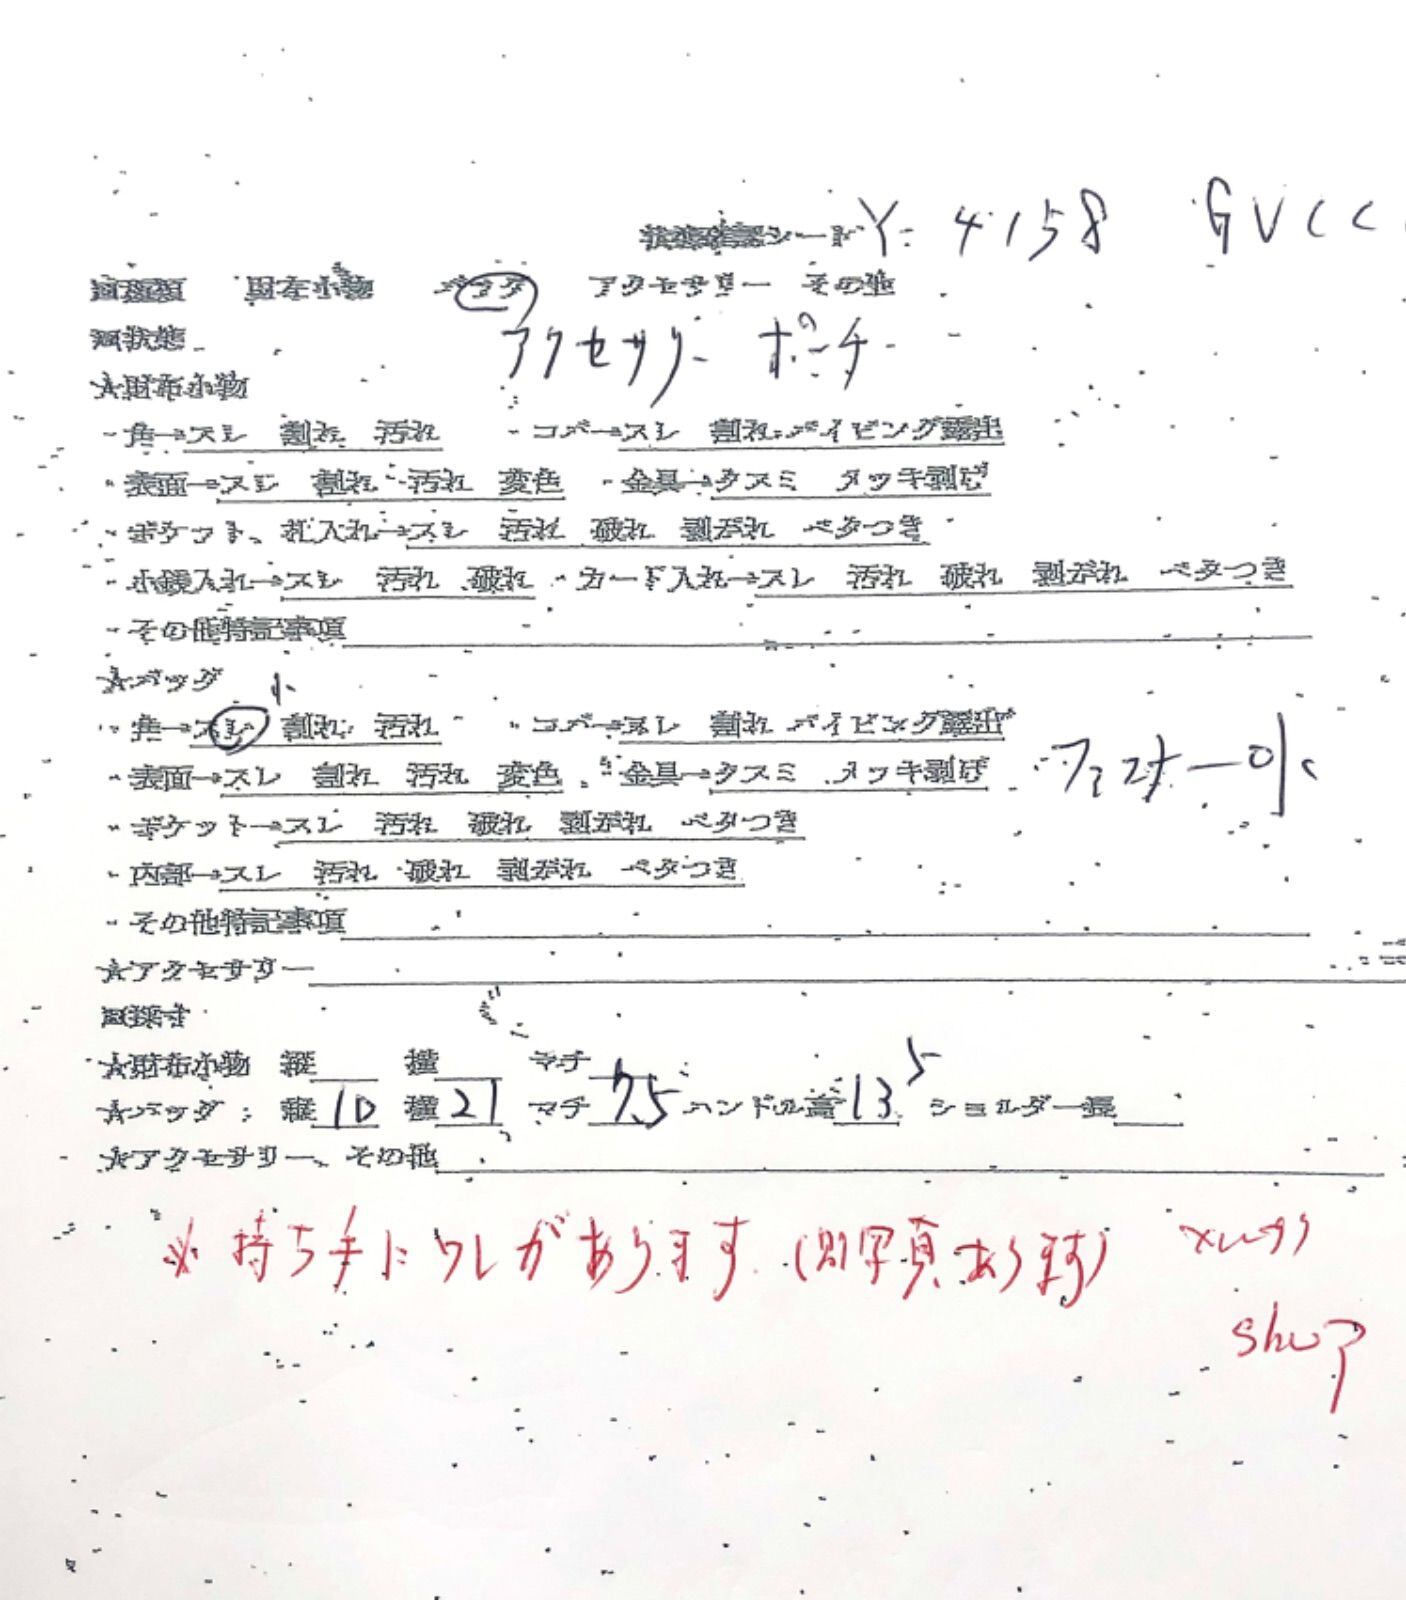 状態確認シート Y-4158 GUCCI
□種類 財布小物 バッグ アクセサリー その他
□状態 アクセサリーポーチ
☆財布小物
・角→スレ 割れ 汚れ ・コバ→スレ 割れ パイピング露出
・表面→スレ 割れ 汚れ 変色 ・金具→クスミ メッキ剥げ
・ポケット、札入れ→スレ 汚れ 破れ 剥がれ ベタつき
・小銭入れ→スレ 汚れ 破れ ・カード入れ→スレ 汚れ 破れ 剥がれ ベタつき
・その他特記事項
☆バッグ 小
・角→スレ 割れ 汚れ ・コバ→スレ 割れ パイピング露出
・表面→スレ 割れ 汚れ 変色 ・金具→クスミ メッキ剥げ ファスナー
・ポケット→スレ 汚れ 破れ 剥がれ ベタつき
・内部→スレ 汚れ 破れ 剥がれ ベタつき
・その他特記事項
☆アクセサリー
□採寸
☆財布小物 縦 横 マチ
☆バッグ:縦10 横21 マチ7.5 ハンドル高13.5 ショルダー長
☆アクセサリー、その他
※持ち手にワレがあります(別写真あります)
shop